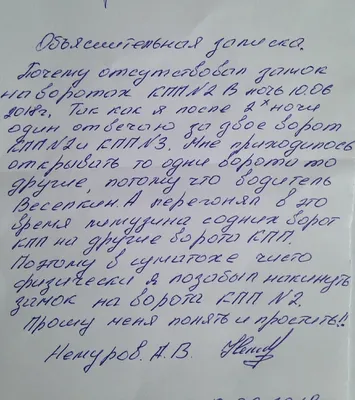 Объяснительная записка.
Почему отсутствовал замок
на воротах КПП №2 В ночь 10.06
2018г. Так как я после 2х ночи
один отвечаю за двое ворот
КПП №2 и КПП №3. Мне приходилось
открывать то одни ворота то
другие, потому что водитель
Веселкин.А перегонял в это
время лимузина с одних ворот
КПП на другие ворота КПП.
Поэтому в суматохе чисто
физически я позабыл накинуть
замок на ворота КПП №2.
Прошу меня понять и простить!!
Немуров. А.В.